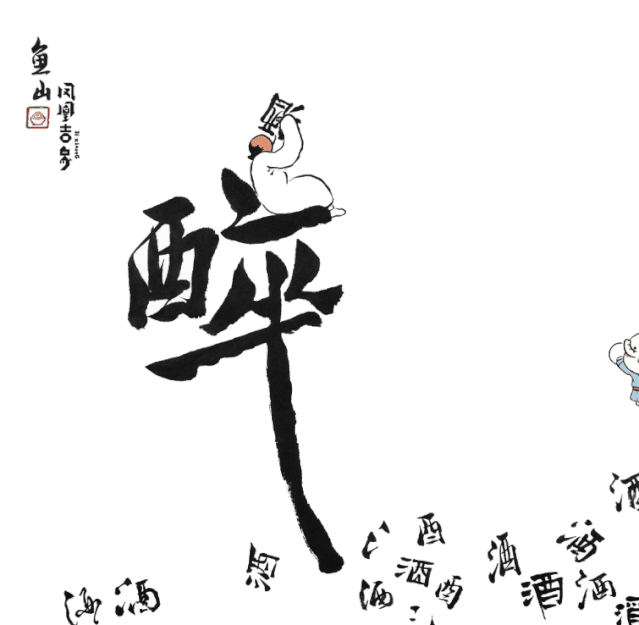 鱼山
凤凰吉象
醉
酒
酒
酒
酒
酒
酒
酒
酒
酒
酒
酒